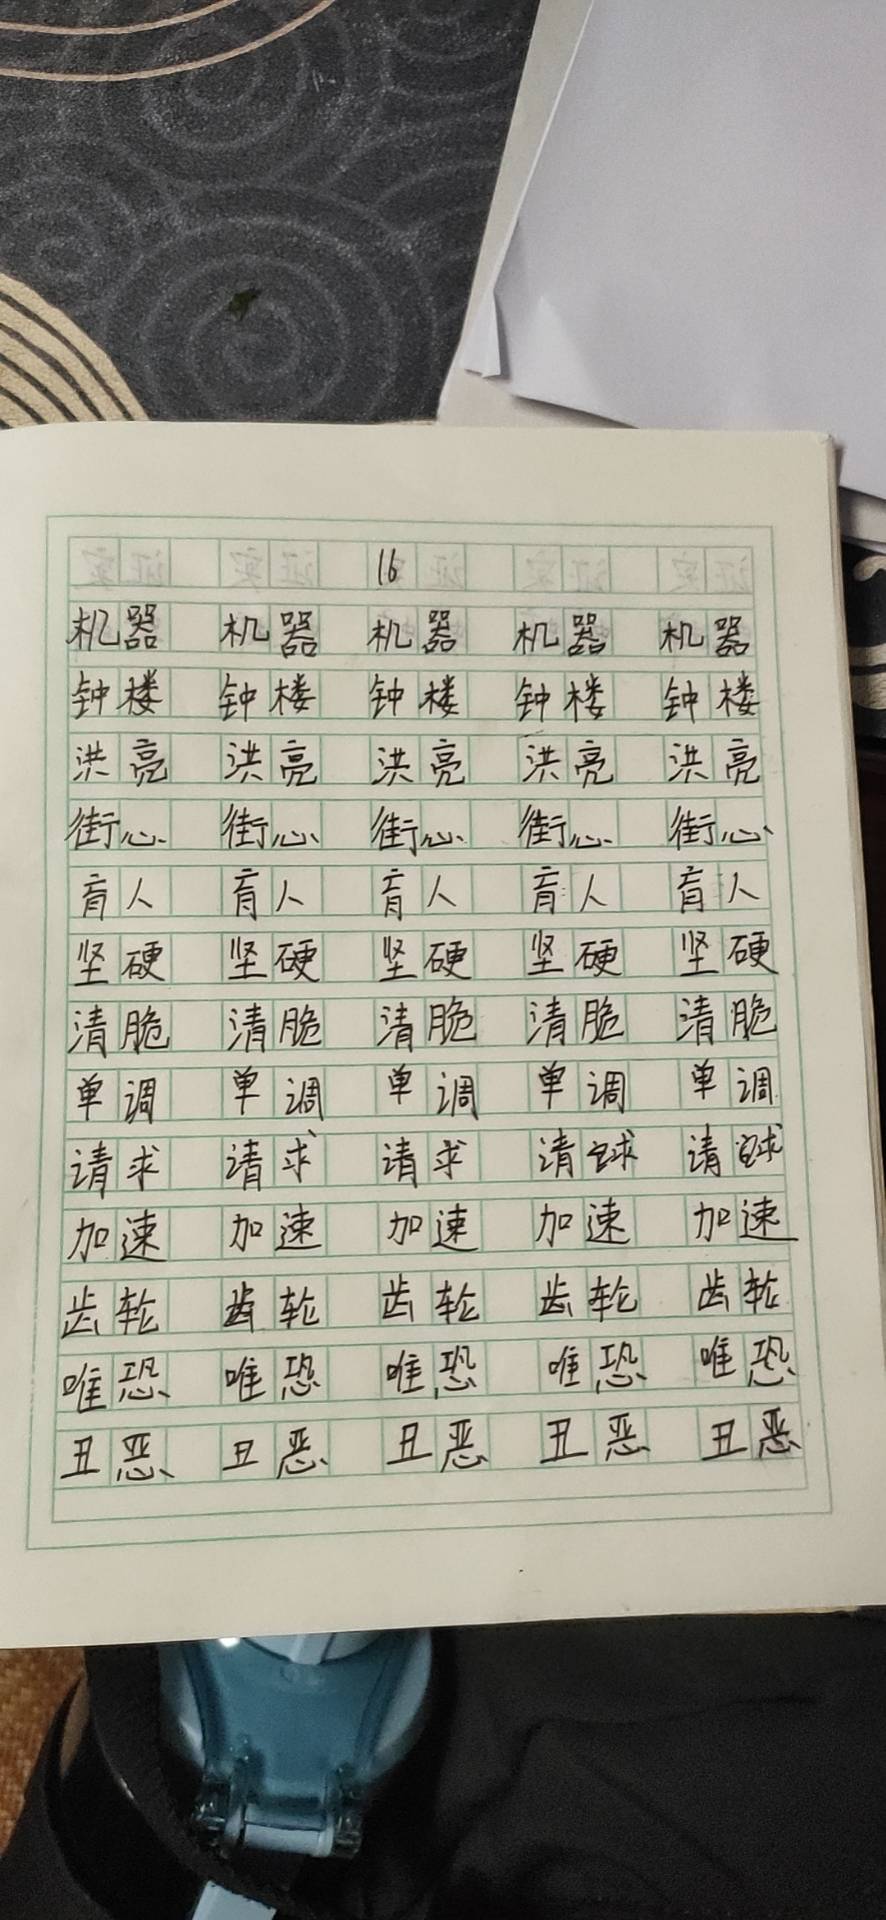 16
机器 机器 机器 机器 机器
钟楼 钟楼 钟楼 钟楼 钟楼
洪亮 洪亮 洪亮 洪亮 洪亮
街心 街心 街心 街心 街心
盲人 盲人 盲人 盲人 盲人
坚硬 坚硬 坚硬 坚硬 坚硬
清脆 清脆 清脆 清脆 清脆
单调 单调 单调 单调 单调
请求 请求 请求 请求 请求
加速 加速 加速 加速 加速
齿轮 齿轮 齿轮 齿轮 齿轮
唯恐 唯恐 唯恐 唯恐 唯恐
丑恶 丑恶 丑恶 丑恶 丑恶